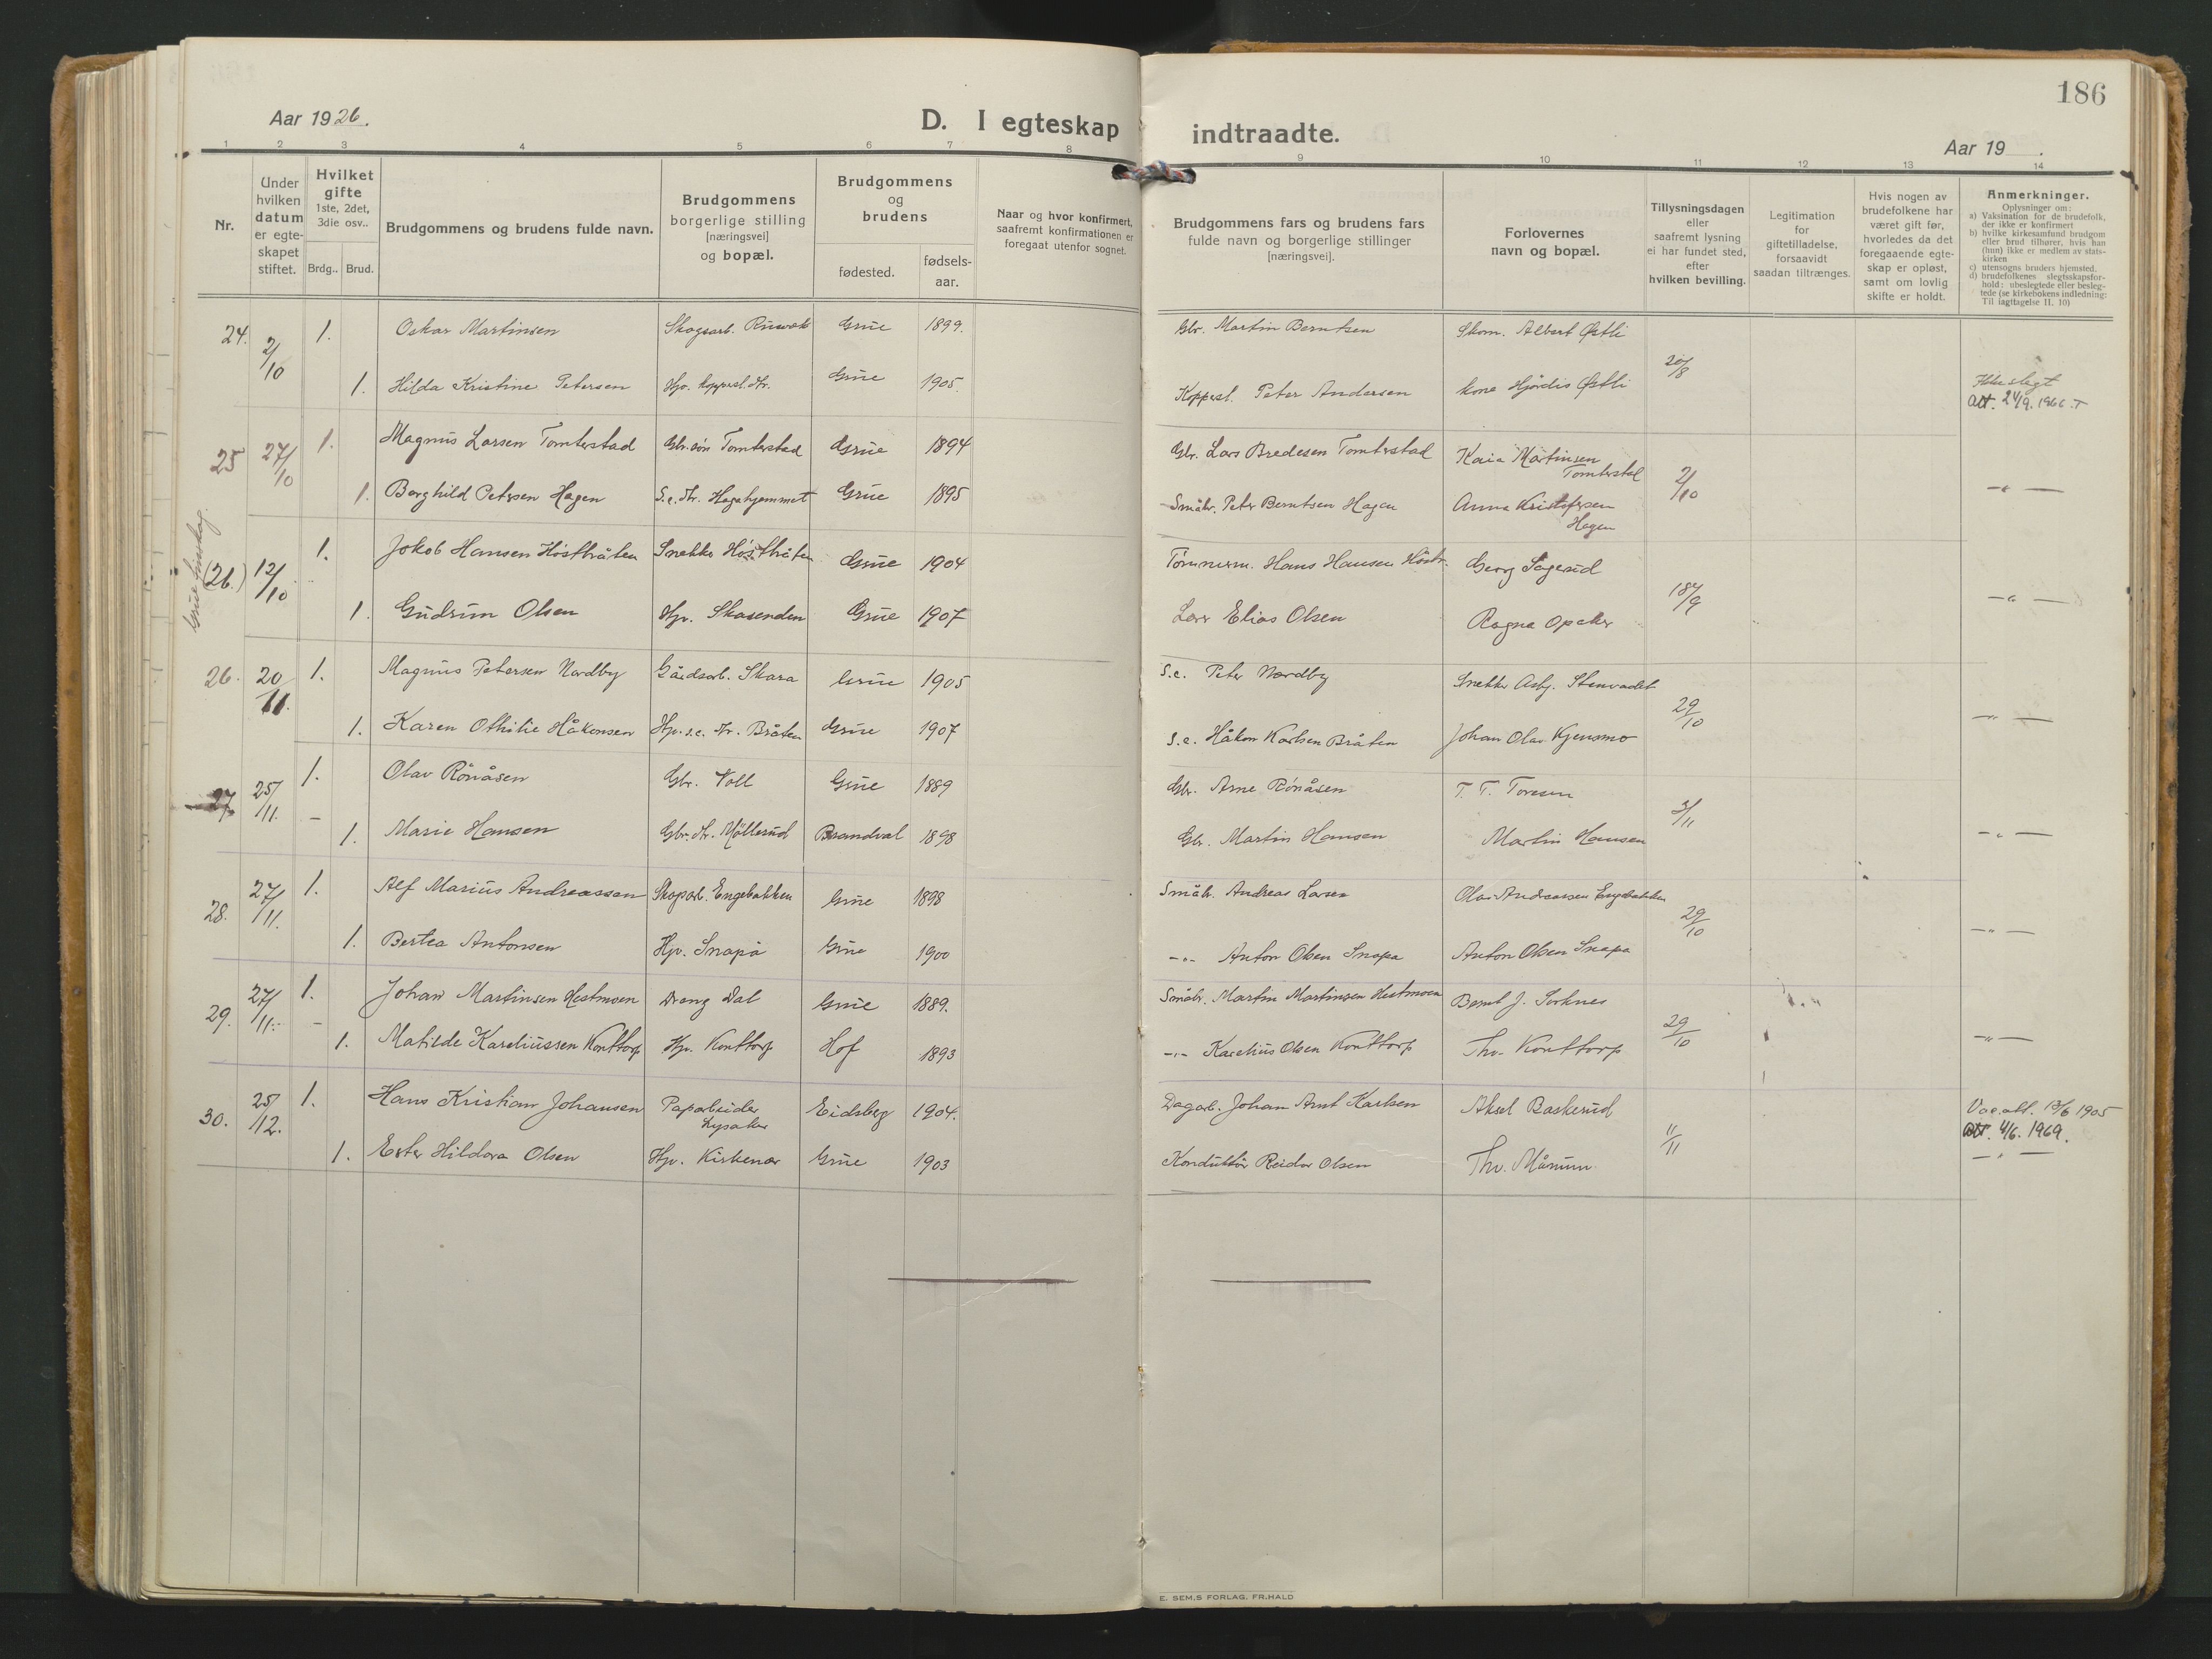 186
Aar 1926.
D. I egteskap indtraadte.
Aar 19 .
1 2 3 4 5 6 7 8 9 10 11 12 13 14
Nr.
Under hvilken datum er egte-skapet stiftet.
Hvilket gifte 1ste, 2det, 3die osv..
Brdg.. Brud.
Brudgommens og brudens fulde navn.
Brudgommens borgerlige stilling [næringsvei] og bopæl.
Brudgommens og brudens
fødested.
fødsels-aar.
Naar og hvor konfirmert, saafremt konfirmationen er foregaat utenfor sognet.
Brudgommens fars og brudens fars fulde navn og borgerlige stillinger [næringsvei].
Forlovernes navn og bopæl.
Tillysningsdagen eller saafremt lysning ei har fundet sted, efter hvilken bevilling.
Legitimation for giftetilladelse, forsaavidt saadan tiltrænges.
Hvis nogen av brudefolkene har været gift før, hvorledes da det foregaaende egte-skap er opløst, samt om lovlig skifte er holdt.
Anmerkninger.
Oplysninger om:
a) Vaksination for de brudefolk, der ikke er konfirmert
b) hvilke kirkesamfund brudgom eller brud tilhører, hvis han (hun) ikke er medlem av stats-kirken
c) utensogns bruders hjemsted.
d) brudefolkenes slegtsskapsfor-hold: ubeslegtede eller besleg-tede (se kirkebokens indledning: Til iagttagelse II. 10)
24. 2/10 1. Oskar Martinsen Skogsarb. Grue 1899. Gbr. Martin Berntsen Skom. Albert Østli 20/8
1. Hilda Kristine Petersen Hjv. Grue 1905. Peter Andersen kone Hjördis Østli Ikke slegt
Att.
25 27/10 1. Magnus Larsen Tomterstad Gbr. sön Tomterstad Grue 1894 Gbr. Lars Bredesen Tomterstad Kaia Martinsen Tomterstad 2/10
1. Borghild Petersen Hagen S.e. dtr. Hagehjemmet Grue 1895 Småbr. Peter Berntsen Hagen Anna Kristofersen Hagen — " —
(26.) 12/10 1. Jakob Hansen Höstbråten Snekker Höstbråten Grue 1904 Tömmerm. Hans Hansen Höstbr. Georg Sagerud 18/9
1. Gudrun Olsen Hjv. Skasenden Grue 1907 Elias Olsen Ragna — " —
26. 20/11. 1. Magnus Petersen Nordby Gårdsarb. Skara Grue 1905 S.e. Peter Nordby Snekker Asbj. Stenvadet 29/10
1. Karen Othilie Håkonsen Hjv. s.e. dtr. Bråten Grue 1907 S.e. Håkon Karlsen Bråten Johan Olav Kjensmo — " —
27 25/11. 1. Olav Rönåsen Gbr. Voll Grue 1889 Gbr. Arne Rönåsen T. T. Toresen 3/11
– 1. Marie Hansen Gbr. dtr. Möllerud Brandval 1898 Gbr. Martin Hansen Martin Hansen — " —
28. 27/11. 1. Alf Marius Andreassen Skogsarb. Engebakken Grue 1898 Småbr. Andreas Larsen Olav Andreassen Engebakken 29/10
1. Bertea Antonsen Hjv. Snapa Grue 1900 — " — Anton Olsen Snapa Anton Olsen Snapa — " —
29. 27/11. 1. Johan Martinsen Hestmoen Dreng Dal Grue 1889. Småbr. Martin Martinsen Hestmoen Bernt J. Sorknes 29/10
– 1. Matilde Kareliussen Konttorp Hjv. Konttorp Hof 1893 — " — Karelius Olsen Konttorp Thv. Konttorp — " —
30. 25/12. 1. Hans Kristian Johansen Paparbeider Lysaker Eidsberg 1904. Dagarb. Johan Arnt Karlsen Aksel Baskerud 11/11 Vac.att. 13/6 1905
Att. 4/6. 1969.
1. Ester Hildora Olsen Hjv. Kirkenær Grue 1903 Konduktör Reidar Olsen Thv. Månum — " —
E. SEM,S FORLAG, FR.HALD